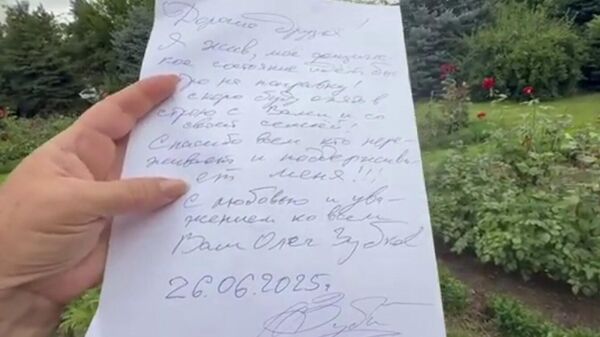 Дорогие друзья!
Я жив, мое
кое состояние
на поправку!
скоро буду опять в
строю с Вами и со
своей семьей!
Спасибо всем кто пере-
живает и поддержива-
ет меня!!!
С любовью и ува-
жением ко всем
Ваш Олег Зубков
26.06.2025г